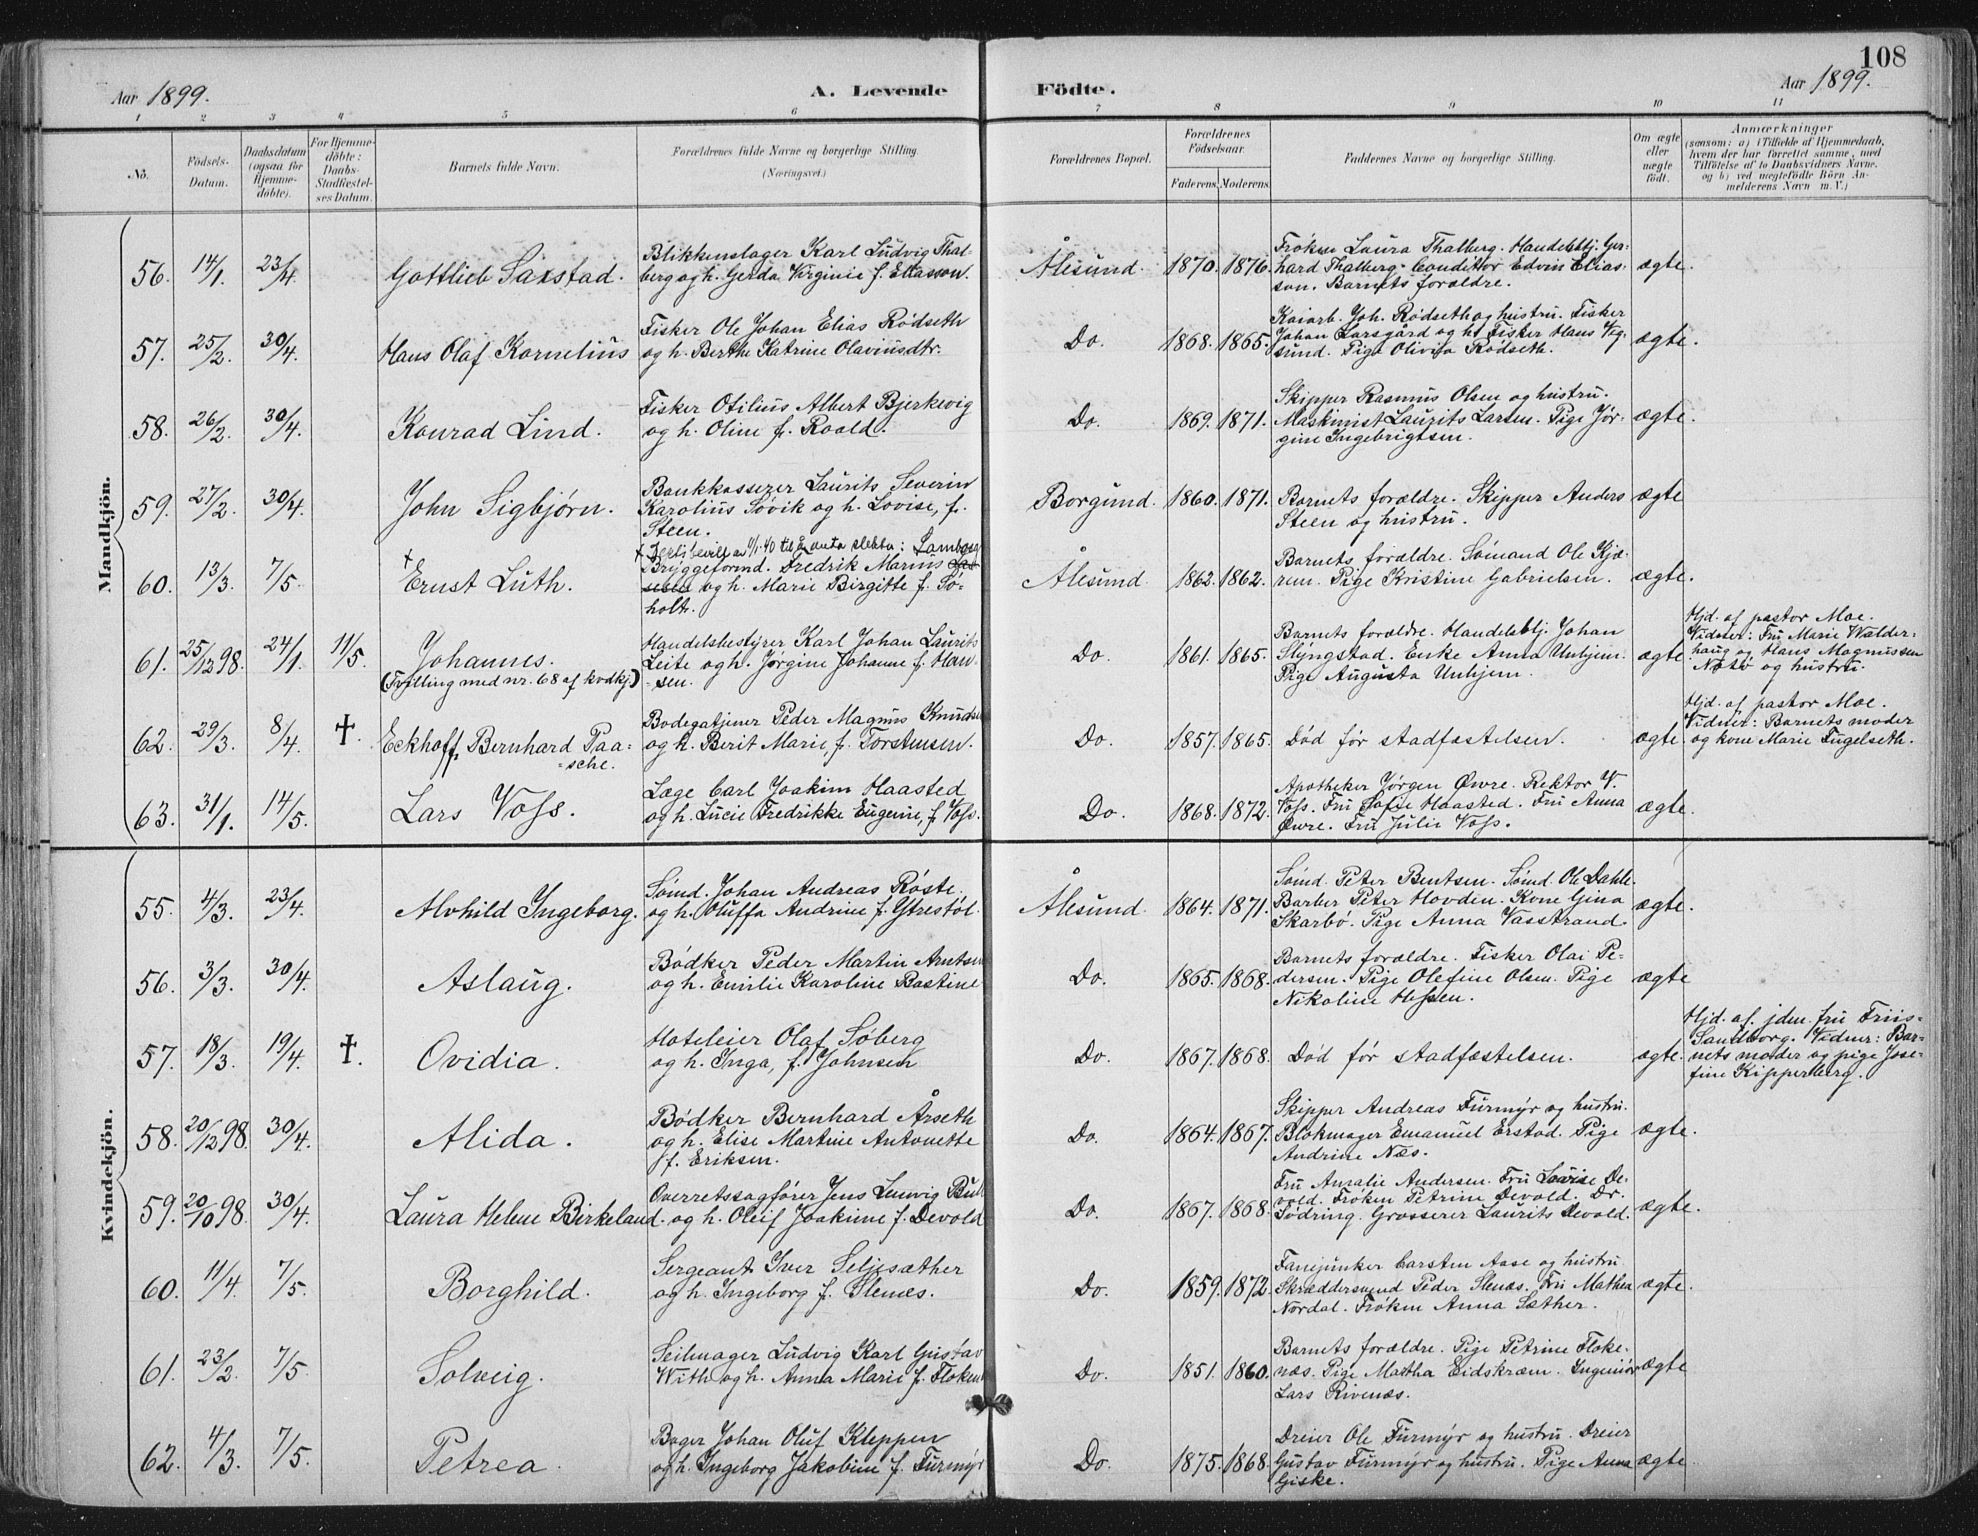 108
Aar 1899.
A. Levende Födte.
Aar 1899.
1 2 3 4 5 6 7 8 9 10 11
No.
Födsels-
Datum.
Daabsdatum
(ogsaa for
Hjemme-
döbte).
For Hjemme-
döbte:
Daabs-
Stadfæstel-
ses Datum.
Barnets fulde Navn.
Forældrenes fulde Navne og borgerlige Stilling.
(Næringsvei.)
Forældrenes Bopæl.
Forældrenes
Födselsaar.
Faderens. Moderens.
Faddernes Navne og borgerlige Stilling.
Om ægte
eller
uægte
födt.
Anmærkninger
(saasom: a) i Tilfælde af Hjemmedaab,
hvem der har forrettet samme, med
Tilföielse af to Daabsvidners Navne,
og b) ved uægtefödte Börn An-
melderens Navn m. V.)
Mandkjön.
56. 14/1 23/4. Gottlieb Saxstad.
Blikkenslager Karl Ludvig Thal-
berg og h. Gerda Virginie f. Eliasson.
Ålesund. 1870. 1876.
Frøken Laura Thalberg. Handelsbtj. Ger-
hard Thalberg. Conditor Edvin Elias-
son. Barnets forældre.
ægte.
57. 25/2. 30/4. Hans Olaf Kornelius
Fisker Ole Johan Elias Rødseth
og h. Berthe Katrine Olaviusdtr.
Do. 1868. 1865.
Kaiarb. Joh. Rødseth og hustru. Fisker
Johan Larsgård og h. Fisker Hans Veg-
sund. Pige Olivia Rødseth.
ægte.
58. 26/2. 30/4. Konrad Lind.
Fisker Otilius Albert Bjerkevig
og h. Oline f. Roald.
Do. 1869. 1871.
Skipper Rasmus Olsen og hustru.
Maskinist Laurits Larsen. Pige Jør-
gine Ingebrigtsen.
ægte.
59. 27/2. 30/4. John Sigbjørn.
Bankkasserer Laurits Severin
Karolius Søvik og h. Lovise, f.
Steen.
Borgund. 1860. 1871.
Barnets forældre. Skipper Anders
Steen og hustru.
ægte
60. 13/3. 7/5. † Ernst Luth.
av 11/1-40 til å anta slektn:
Bryggeformd. Fredrik Marius
og h. Marie Birgitte f. Sø-
holt.
Ålesund. 1862. 1862.
Barnets forældre. Sømand Ole Kjæ-
rem. Pige Kristine Gabrielsen.
ægte.
61. 25/12 98. 24/1. 11/5. Johannes.
(Tvilling med nr. 68 af kvdkj)
Handelsbestyrer Karl Johan Laurits
Leite og h. Jørgine Johanne f. Han-
sen.
Do. 1861. 1865.
Barnets forældre. Handelsbtj. Johan
Slyngstad. Enke Anna Unhjem.
Pige Augusta Unhjem.
ægte.
Hjd. af pastor Moe.
Vidner: Fru Marie Walder-
haug og Hans Magnussen
Næsø og hustru.
62. 29/3. 8/4. †. Eckhoff Bernhard Paa-
sche.
Bodegatjener Peder Magnus Knudsen
og h. Berit Marie f. Torstensen.
Do. 1857. 1865.
Død før stadfæstelsen.
ægte.
Hjd. af pastor Moe.
Vidner: Barnets moder
og kone Marie Fugelseth.
63. 31/1. 14/5. Lars Voss.
Læge Carl Joakim Haasted
og h. Lucie Fredrikke Eugenie, f. Voss.
Do. 1868. 1872.
Apotheker Jørgen Øwre. Rektor V.
Voss. Fru Sofie Haasted. Fru Anna
Øwre. Fru Julie Voss.
ægte.
Kvindekjön.
55. 4/3. 23/4. Alvhild Ingeborg.
Sømd. Johan Andreas Røste.
og h. Oluffa Andrine f. Ytrestøl.
Ålesund. 1864. 1871.
Sømd. Peter Bentsen. Sømd. Ole Dahle.
Barber Peter Hovden. Kone Gina
Skarbø. Pige Anna Vasstrand.
ægte.
56. 3/3. 30/4. Aslaug.
Bødker Peder Martin Arntsen
og h. Emilie Karoline Bastine
Do. 1865. 1868.
Barnets forældre. Fisker Olai Pe-
dersen. Pige Olefine Olsen. Pige
Nikoline Hessen.
ægte
57. 18/3. 19/4. †. Ovidia.
Hoteleier Olaf Søberg
og h. Inga, f. Johnsen
Do. 1867. 1868.
Død før stadfæstelsen.
ægte.
Hjd. af jdm. fru Friis-
Sandborg. Vidner: Bar-
nets moder og pige Jose-
fine Kipperberg.
58. 20/12 98. 30/4. Alida.
Bødker Bernhard Årseth
og h. Elise Martine Antonette
f. Eriksen.
Do. 1864. 1867.
Skipper Andreas Furmyr og hustru.
Blokmager Emanuel Erstad. Pige
Andrine Næs.
ægte.
59. 20/10 98. 30/4. Laura Helene Birkeland.
Overretssagfører Jens Lauvig Bull
og h. Oleif Joakime f. Devold
Do. 1867. 1868.
Fru Amalie Andersen. Fru Lovise De-
vold. Frøken Petrine Devold. Dr.
Sødring. Grosserer Laurits Devold.
ægte.
60. 11/4. 7/5. Borghild.
Sergeant Iver Seljesæther
og h. Ingeborg f. Slenes.
Do. 1859. 1872.
Fanejunker Carsten Aase og hustru.
Skræddersvend Peder Slenæs. Fru Mathea
Nordal. Frøken Anna Sæther.
ægte.
61. 23/2. 7/5. Solveig.
Seilmager Ludvig Karl Gustav
With og h. Anna Marie f. Floken
Do. 1851. 1860.
Barnets forældre. Pige Petrine Floke-
næs. Pige Martha Eidskrem. Ingeniør
Lars Rivenæs.
ægte
62. 4/3. 7/5. Petrea.
Bager Johan Oluf Kleppen
og h. Ingeborg Jakobine f. Furmyr
Do. 1875. 1868.
Dreier Ole Furmyr og hustru. Dreier
Gustav Furmyr og hustru. Pige Anna
Giske.
ægte